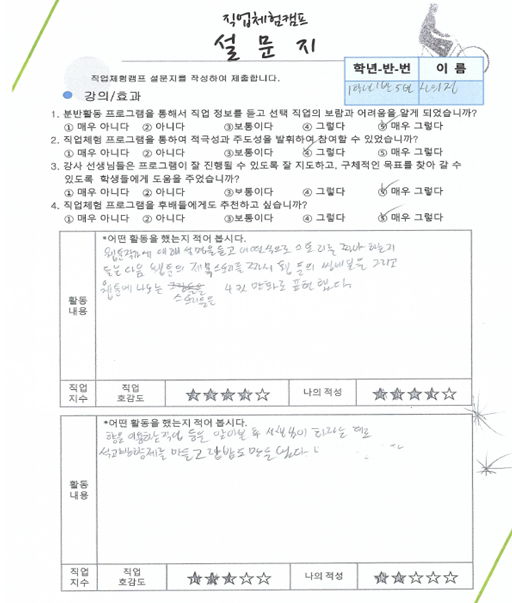 직업체험캠프
설 문 지
직업체험캠프 설문지를 작성하여 제출합니다.
학년-반-번 이 름
1학년 1반 5번
● 강의/효과
1. 분반활동 프로그램을 통해서 직업 정보를 듣고 선택 직업의 보람과 어려움을 알게 되었습니까?
① 매우 아니다 ② 아니다 ③보통이다 ④ 그렇다 ⑤ 매우 그렇다
2. 직업체험 프로그램을 통하여 적극성과 주도성을 발휘하여 참여할 수 있었습니까?
① 매우 아니다 ② 아니다 ③보통이다 ④ 그렇다 ⑤ 매우 그렇다
3. 강사 선생님들은 프로그램이 잘 진행될 수 있도록 잘 지도하고, 구체적인 목표를 찾아 갈 수
있도록 학생들에게 도움을 주었습니까?
① 매우 아니다 ② 아니다 ③보통이다 ④ 그렇다 ⑤ 매우 그렇다
4. 직업체험 프로그램을 후배들에게도 추천하고 싶습니까?
① 매우 아니다 ② 아니다 ③보통이다 ④ 그렇다 ⑤ 매우 그렇다
*어떤 활동을 했는지 적어 봅시다.
웹툰작가에 대해 설명을 듣고 어떤식으로 스토리를 짜야 하는지
들은 다음 웹툰의 제목 스토리를 짜서 웹툰의 썸네일을 그리고
웹툰에 나오는 스토리을 4컷 만화로 표현했다
활동
내용
직업
지수
직업
호감도
★★★★☆
나의 적성
★★★★☆
*어떤 활동을 했는지 적어 봅시다.
향을 이용하는 직업 등을 알아본 후 선생님이 하라는 대로
석고방향제를 만들고 립밤도 만들었다
활동
내용
직업
지수
직업
호감도
★★★☆☆
나의 적성
★★☆☆☆